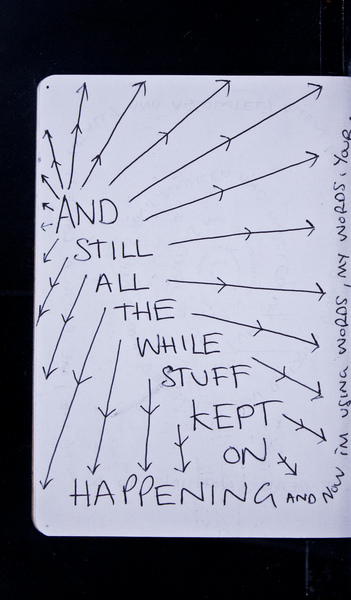 AND
STILL
ALL
THE
WHILE
STUFF
KEPT
ON
HAPPENING AND NOW IM USING WORDS, MY WORDS, YOUR